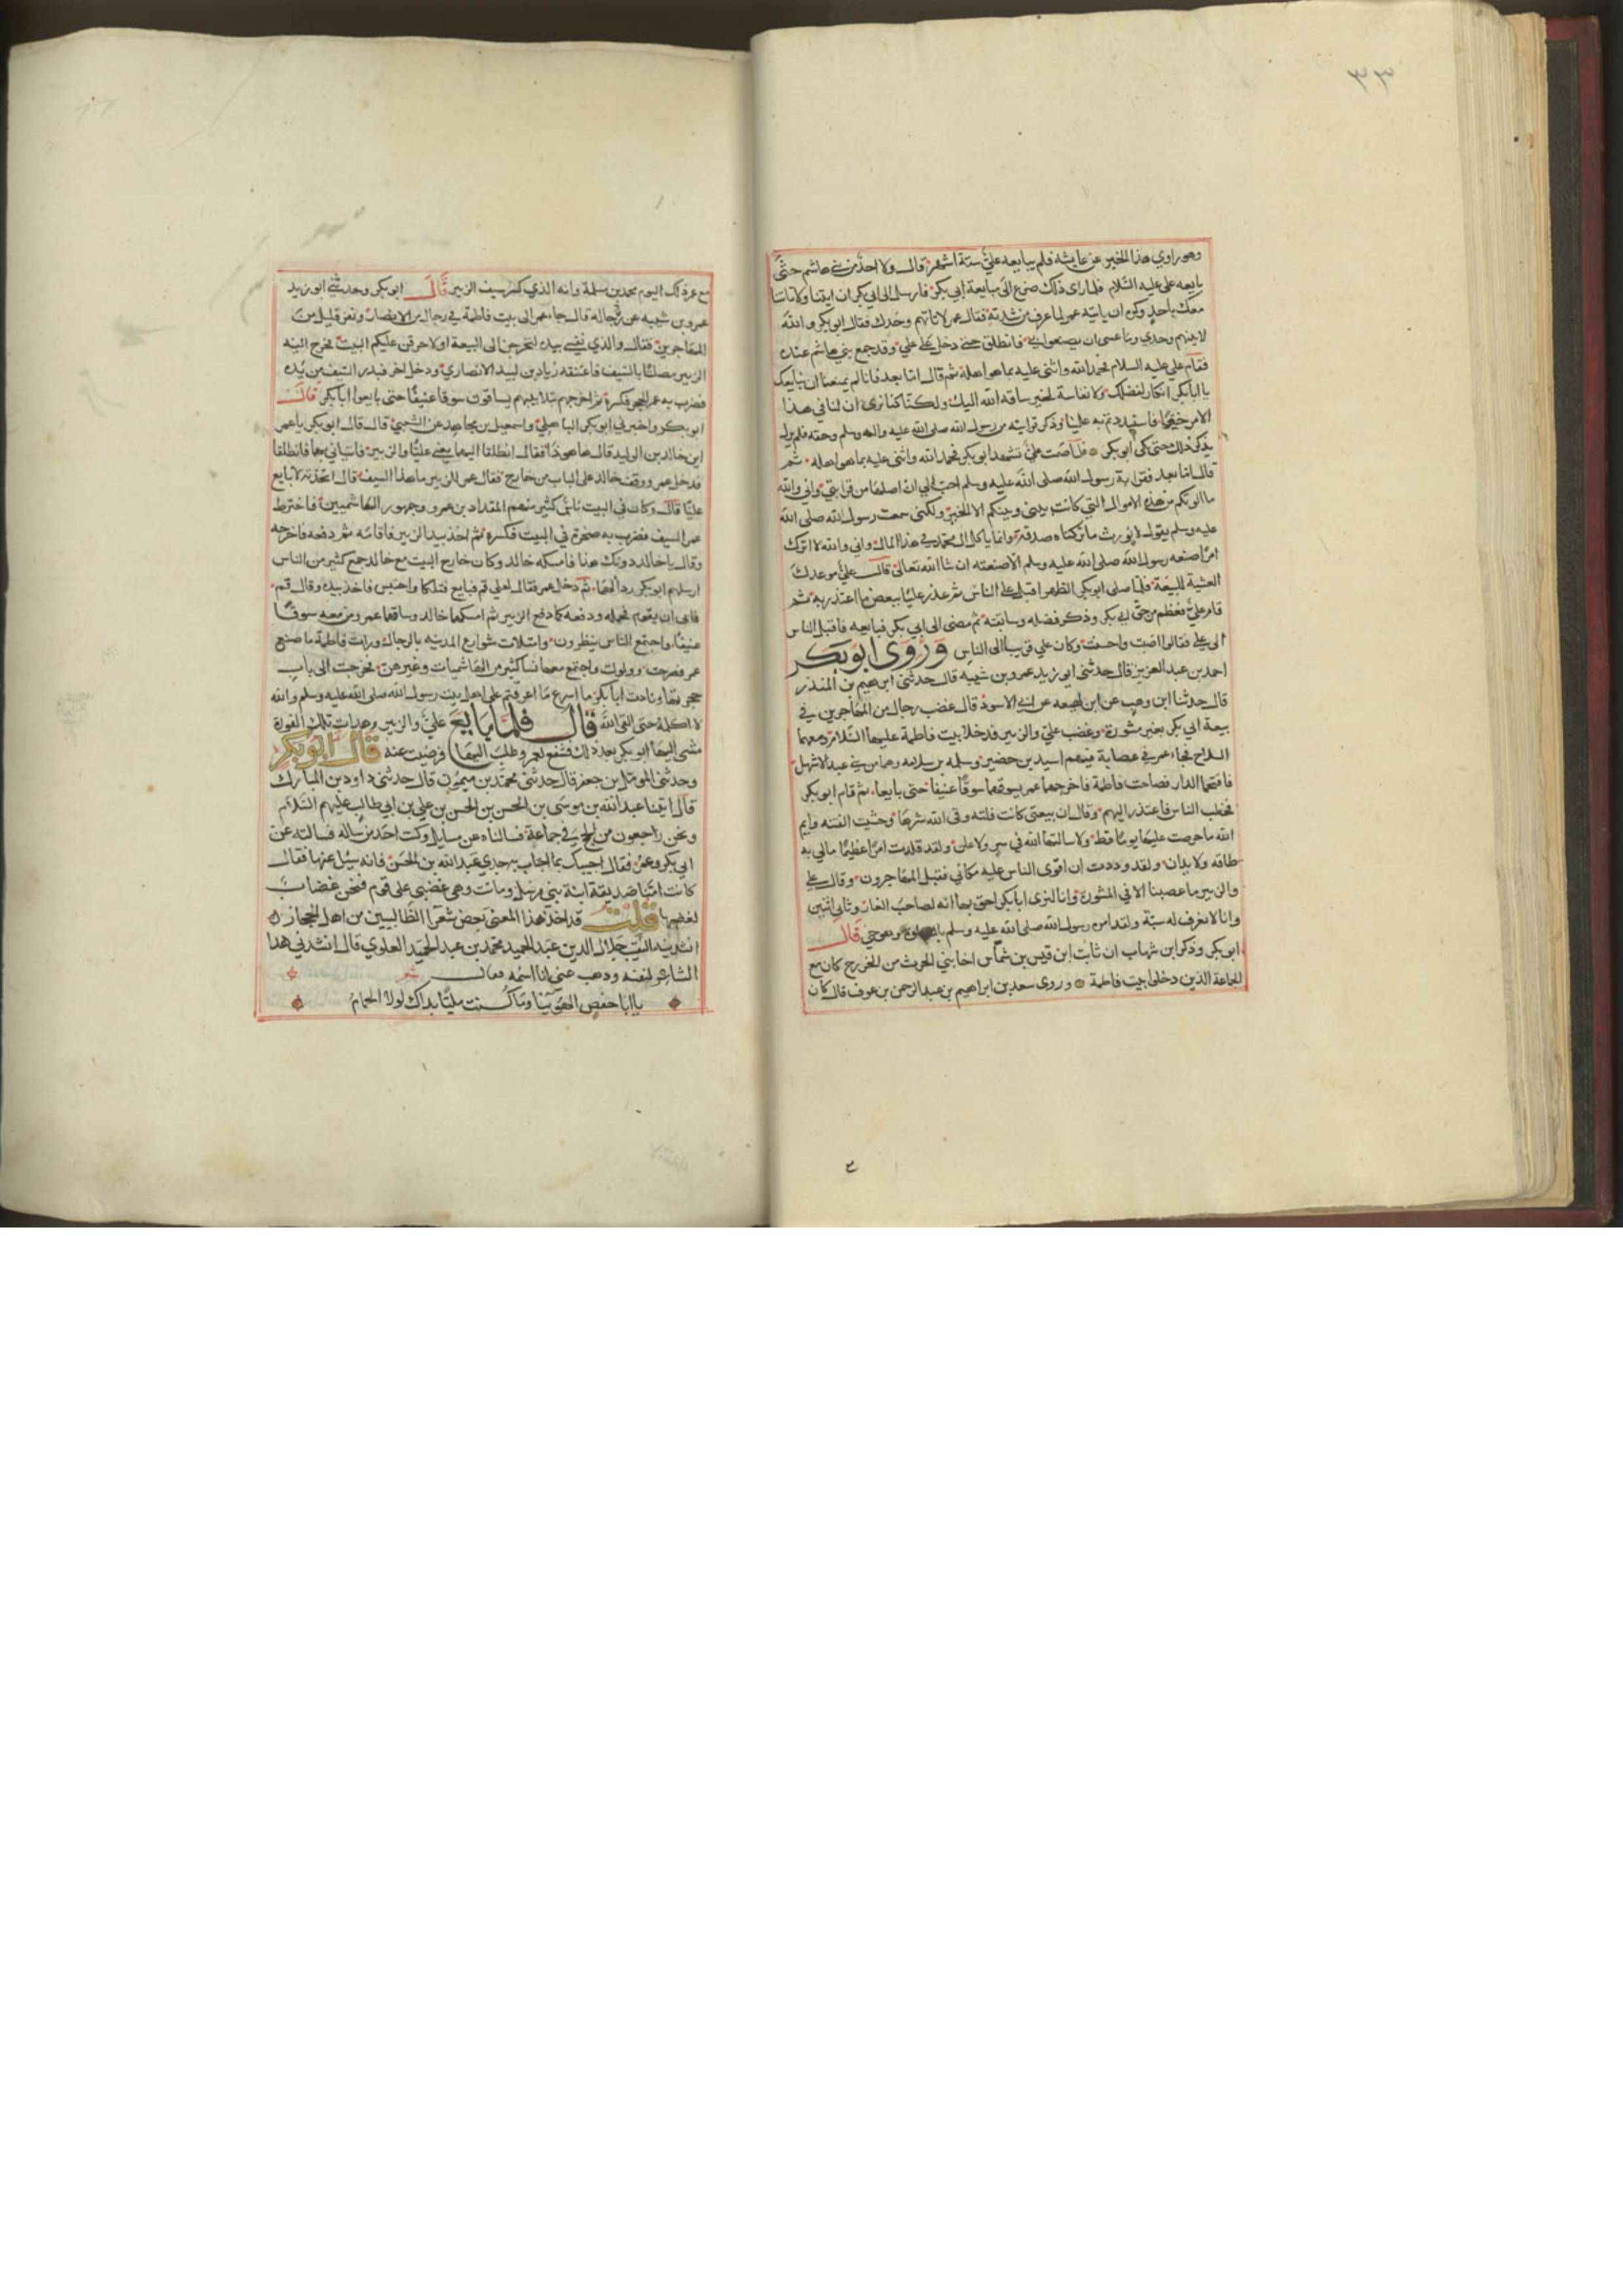 ٣٣
وهو راوي هذا الخبر عن عايشه فلم يبايعه علي ستة اشهر قال ولا احد من بني هاشم حتى
بايعه علي عليه السلام فلما راى ذلك ضرع الى مبايعة ابي بكر فارسل الى ابي بكر ان ايتنا ولا تاتنا
معك باحد وكره ان ياتيه عمر لما عرف من شدته فقال عمر لا تاتهم وحدك فقال ابو بكر والله
لاتينهم وحدي وما عسى ان يصنعوا بي فانطلق حتى دخل على علي وقد جمع بني هاشم عنده
فقام علي عليه السلام فحمد الله واثنى عليه بما هو اهله ثم قال اما بعد فانا لم يمنعنا ان نبايعك
يا ابا بكر انكار لفضلك ولا نفاسة لخير ساقه الله اليك ولكنا كنا نرى ان لنا في هذا
الامر حقا فاستبددتم به علينا وذكر قرابته من رسول الله صلى الله عليه واله وسلم وحقه فلم يزل
يذكر ذلك حتى بكى ابو بكر فلما صمت علي تشهد ابو بكر فحمد الله واثنى عليه بما هو اهله ثم
قال اما بعد فقرابة رسول الله صلى الله عليه وسلم احب الي ان اصلها من قرابتي واني والله
ما الوتكم من هذه الاموال التي كانت بيني وبينكم الا الخير ولكني سمعت رسول الله صلى الله
عليه وسلم يقول لا نورث ما تركناه صدقة وانما ياكل ال محمد في هذا المال واني والله لا اترك
امرا صنعه رسول الله صلى الله عليه وسلم الا صنعته ان شا الله تعالى قال علي موعدك
العشية للبيعة فلما صلى ابو بكر الظهر اقبل على الناس ثم عذر عليا ببعض ما اعتذر به ثم
قام علي فعظم من حق ابي بكر وذكر فضله وسابقته ثم مضى الى ابي بكر فبايعه فاقبل الناس
الى علي فقالوا اصبت واحسنت وكان علي قريبا الى الناس وروى ابو بكر
احمد بن عبد العزيز قال حدثني ابو زيد عمرو بن شيبه قال حدثني ابرهيم بن المنذر
قال حدثنا ابن وهب عن ابن لهيعه عن ابي الاسود قال غضب رجال من المهاجرين في
بيعة ابي بكر بغير مشورة وغضب علي والزبير فدخلا بيت فاطمة عليها السلام ومعهما
السلاح فجاء عمر في عصابة فيهم اسيد بن حضير وسلمه بن سلامه وهما من بني عبد الاشهل
فاقتحما الدار فصاحت فاطمة فاخرجهما عمر يسوقهما سوقا عنيفا حتى بايعا ثم قام ابو بكر
فخطب الناس فاعتذر اليهم وقال ان بيعتي كانت فلته وقى الله شرها وخشيت الفتنه وايم
الله ما حرصت عليها يوما قط ولا سالتها الله في سر ولا علن ولقد قلدت امرا عظيما مالي به
طاقه ولا يدان ولقد وددت ان اقوى الناس عليه مكاني فقبل المهاجرون وقال علي
والزبير ما غضبنا الا في المشورة وانا لنرى ابا بكر احق بها انه لصاحب الغار وثاني اثنين
وانا لا نعرف له سنه ولقد امره رسول الله صلى الله عليه وسلم وهو حي قال
ابو بكر وذكر ابن شهاب ان ثابت ابن قيس بن شماس اخا بني الحرث من الخزرج كان مع
الجماعة الذين دخلوا بيت فاطمة وروى سعد بن ابراهيم بن عبد الرحمن بن عوف قال كان
مع عمر ذلك اليوم محمد بن مسلمة وانه الذي كسر سيف الزبير قال ابو بكر وحدثني ابو زيد
عمرو بن شيبه عن رجاله قال جاء عمر الى بيت فاطمة في رجال من الانصار ونفر قليل من
المهاجرين فقال والذي نفسي بيده لتخرجن الى البيعة او لاحرقن عليكم البيت فخرج اليه
الزبير مصلتا بالسيف فاعتنقه زياد بن لبيد الانصاري ودخل اخر فبدر السيف من يده
فضرب به عمر الحجر فكسره ثم اخرجهم بتلابيبهم يساقون سوقا عنيفا حتى بايعوا ابا بكر قال
ابو بكر واخبرني ابو بكر الباهلي واسمعيل بن مجاهد عن الشعبي قال قال ابو بكر يا عمر
اين خالد بن الوليد قال ها هو ذا فقال انطلقا اليهما يعني عليا والزبير فاتياني بهما فانطلقا
فدخل عمر ووقف خالد على الباب من خارج فقال عمر للزبير ما هذا السيف قال اتخذته لابايع
عليا قال وكان في البيت ناس كثير منهم المقداد بن عمرو وجمهور الهاشميين فاخترط
عمر السيف فضرب به صخرة في البيت فكسره ثم اخذ بيد الزبير فاقامه ثم دفعه فاخرجه
وقال يا خالد دونك هذا فامسكه خالد وكان خارج البيت مع خالد جمع كثير من الناس
ارسلهم ابو بكر ردا لهما ثم دخل عمر فقال لعلي قم فبايع فتلكا واحتبس فاخذ بيده وقال قم
فابى ان يقوم فحمله ودفعه كما دفع الزبير ثم امسكهما خالد وساقهما عمر ومن معه سوقا
عنيفا واجتمع الناس ينظرون وامتلات شوارع المدينه بالرجال ورات فاطمة ما صنع
عمر فصرخت وولولت واجتمع معها نسا كثير من الهاشميات وغيرهن فخرجت الى باب
حجرتها ونادت ابا بكر ما اسرع ما اغرتم على اهل بيت رسول الله صلى الله عليه وسلم والله
لا اكلمه حتى القى الله قال فلما بايع علي والزبير وهدات تلك الفورة
مشى اليها ابو بكر بعد ذلك فشفع لعمر وطلب اليها فرضيت عنه قال ابو بكر
وحدثني المومل بن جعفر قال حدثني محمد بن ميمون قال حدثني داود بن المبارك
قال اتينا عبد الله بن موسى بن الحسن بن الحسن بن علي بن ابي طالب عليهم السلام
ونحن راجعون من الحج في جماعة فسالناه عن مسايل وكنت احد من ساله فسالته عن
ابي بكر وعمر فقال اجيبك بما اجاب به جدي عبد الله بن الحسن فانه سئل عنها فقال
كانت امنا صديقة ابنة نبي مرسل وماتت وهي غضبى على قوم فنحن غضاب
لغضبها قلت قد اخذ هذا المعنى بعض شعرا الطالبيين من اهل الحجاز
انشدنيه النقيب جلال الدين عبد الحميد محمد بن عبد الحميد العلوي قال انشدني هذا
الشاعر لنفسه وذهب عني انا اسمه فقال شعر
يا ابا حفص الهوينا وما كنت مليا بذاك لولا الحمام